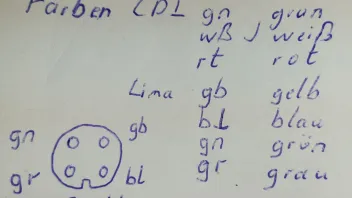 Farben CDI gn grün
wß weiß
rt rot
Lima gb gelb
bl blau
gn grün
gr grau
gn gb
gr bl